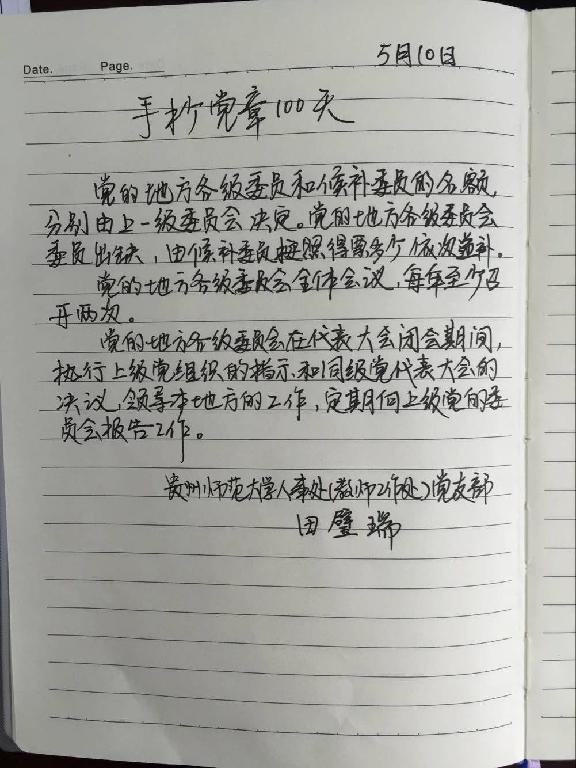 5月10日
Date. Page.
手抄党章100天
党的地方各级委员和候补委员的名额,
分别由上一级委员会决定。党的地方各级委员会
委员出缺,由候补委员按照得票多少依次递补。
党的地方各级委员会全体会议,每年至少召
开两次。
党的地方各级委员会在代表大会闭会期间,
执行上级党组织的指示和同级党代表大会的
决议,领导本地方的工作,定期向上级党的委
员会报告工作。
贵州师范大学人事处(教师工作处)党支部
田璧瑞